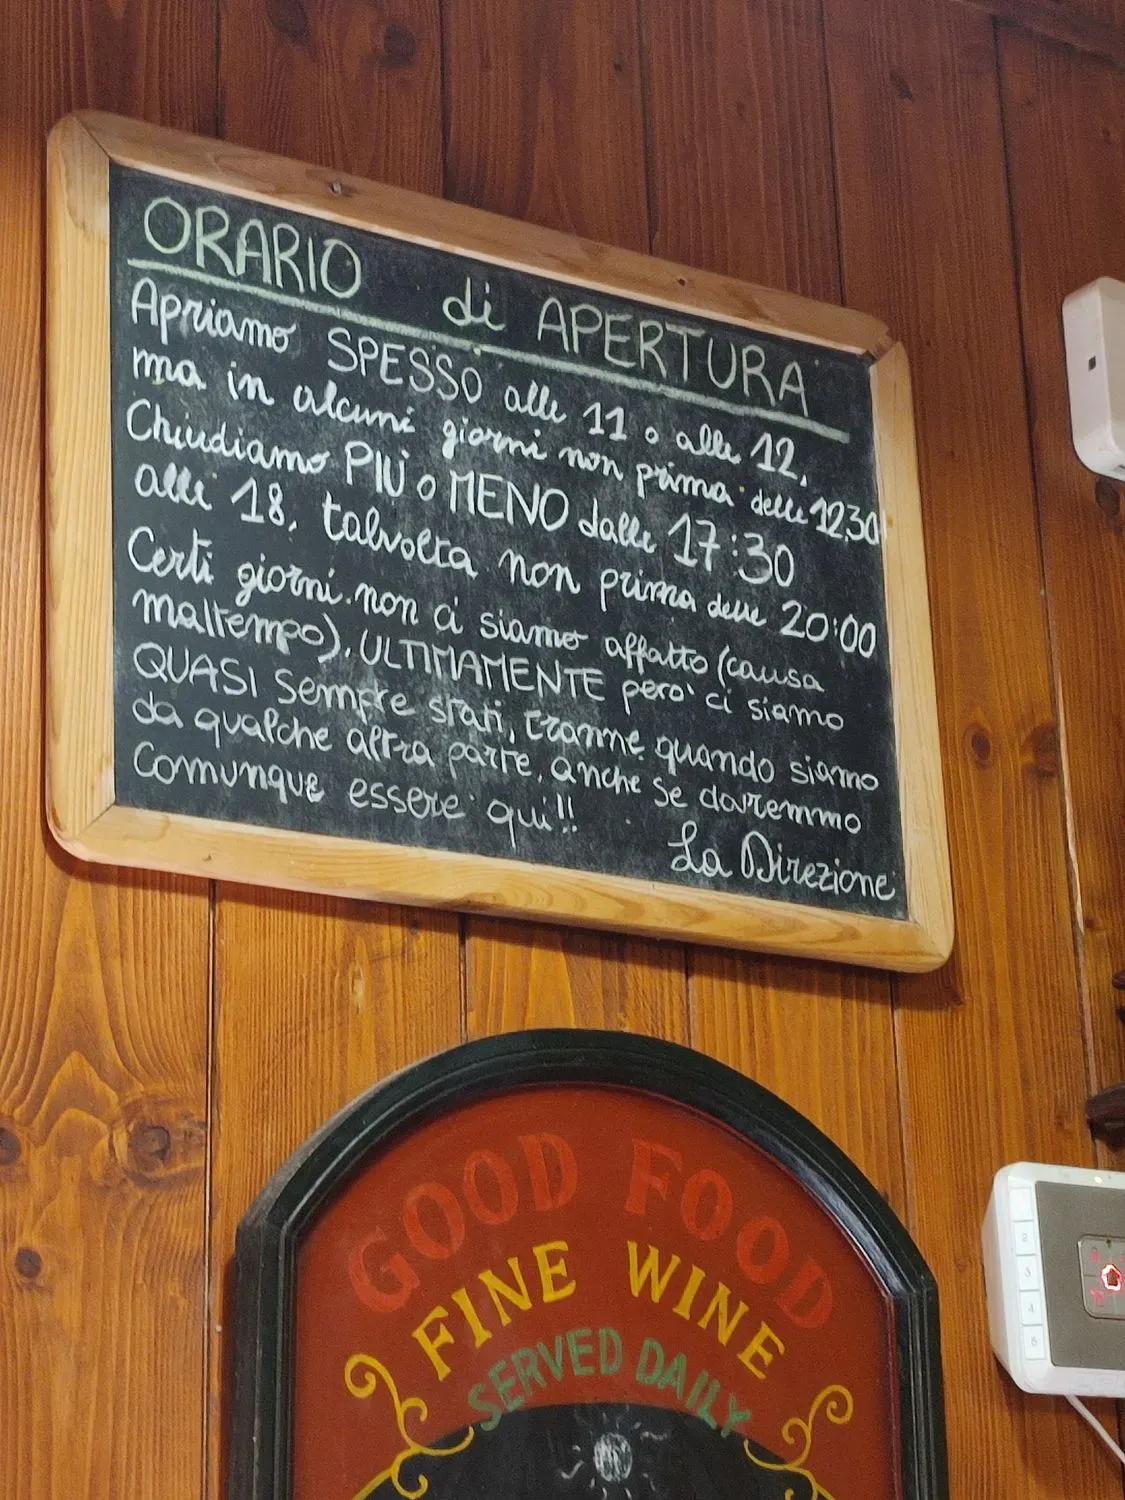 ORARIO di APERTURA
Apriamo SPESSO alle 11 o alle 12,
ma in alcuni giorni non prima delle 12.30
Chiudiamo PIÙ o MENO dalle 17:30
alle 18, talvolta non prima delle 20:00
Certi giorni non ci siamo affatto (causa
maltempo), ULTIMAMENTE però ci siamo
QUASI sempre stati, tranne quando siamo
da qualche altra parte, anche se dovremmo
Comunque essere qui!!
La Direzione
GOOD FOOD
FINE WINE
SERVED DAILY
2
3
4
5